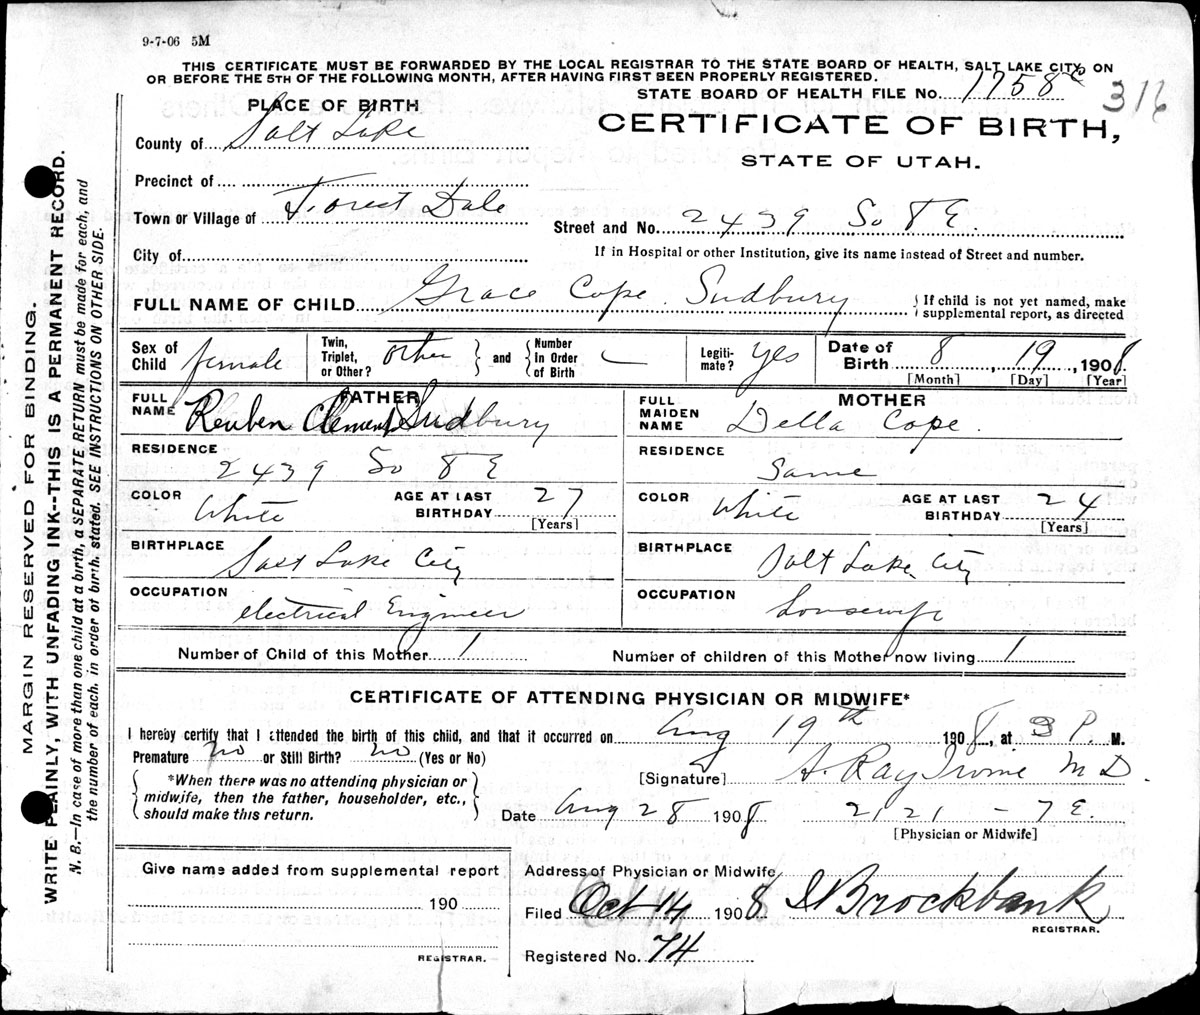 9-7-06 5M
THIS CERTIFICATE MUST BE FORWARDED BY THE LOCAL REGISTRAR TO THE STATE BOARD OF HEALTH, SALT LAKE CITY, ON
OR BEFORE THE 5TH OF THE FOLLOWING MONTH, AFTER HAVING FIRST BEEN PROPERLY REGISTERED.
STATE BOARD OF HEALTH FILE No. 1758
316
PLACE OF BIRTH
CERTIFICATE OF BIRTH,
STATE OF UTAH.
County of Salt Lake
Precinct of
Town or Village of Forest Dale
Street and No. 2439 So 8 E.
City of
If in Hospital or other Institution, give its name instead of Street and number.
FULL NAME OF CHILD Grace Cope Sudbury
If child is not yet named, make supplemental report, as directed
Sex of Child female
Twin, Triplet, or Other? Other and Number in Order of Birth
Legitimate? Yes
Date of Birth 8, 19, 1908.
[Month] [Day] [Year]
FATHER
FULL NAME Reuben Clement Sudbury
RESIDENCE 2439 So 8 E
COLOR White
AGE AT LAST BIRTHDAY 27
[Years]
BIRTHPLACE Salt Lake City
OCCUPATION electrical Engineer
MOTHER
FULL MAIDEN NAME Della Cope.
RESIDENCE Same
COLOR White
AGE AT LAST BIRTHDAY 24
[Years]
BIRTHPLACE Salt Lake City
OCCUPATION housewife
Number of Child of this Mother 1
Number of children of this Mother now living 1
CERTIFICATE OF ATTENDING PHYSICIAN OR MIDWIFE*
I hereby certify that I attended the birth of this child, and that it occurred on Aug 19th 1908, at 3 P. M.
Premature no or Still Birth? no (Yes or No)
*When there was no attending physician or
midwife, then the father, householder, etc.,
should make this return.
[Signature] A. Ray Irvine M D.
Date Aug 28 1908 2121 - 7 E.
[Physician or Midwife]
Give name added from supplemental report
190
REGISTRAR.
Address of Physician or Midwife
Filed Oct 14 1908 Brockbank
REGISTRAR.
Registered No. 74
MARGIN RESERVED FOR BINDING.
WRITE PLAINLY, WITH UNFADING INK--THIS IS A PERMANENT RECORD.
N. B.—In case of more than one child at a birth, a SEPARATE RETURN must be made for each, and
the number of each, in order of birth, stated. SEE INSTRUCTIONS ON OTHER SIDE.